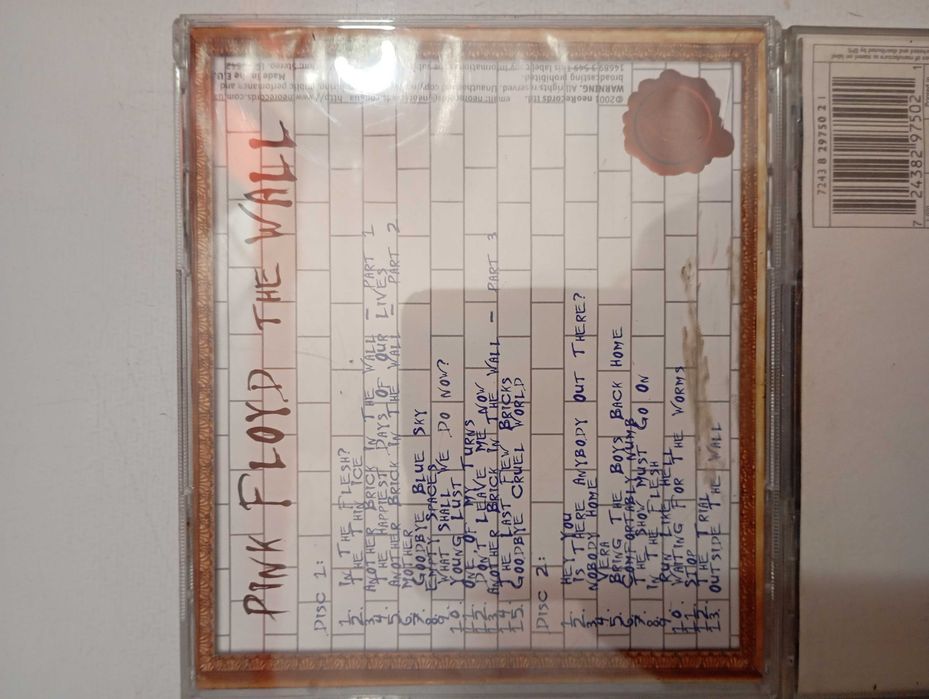 PINK FLOYD THE WALL
DISC 1:
1. IN THE FLESH?
2. THE THIN ICE
3. ANOTHER BRICK IN THE WALL - PART 1
4. THE HAPPIEST DAYS OF OUR LIVES
5. ANOTHER BRICK IN THE WALL - PART 2
6. MOTHER
7. GOODBYE BLUE SKY
8. EMPTY SPACES
9. WHAT SHALL WE DO NOW?
10. YOUNG LUST
11. ONE OF MY TURNS
12. DON'T LEAVE ME NOW
13. ANOTHER BRICK IN THE WALL - PART 3
14. THE LAST FEW BRICKS
15. GOODBYE CRUEL WORLD
DISC 2:
1. HEY YOU
2. IS THERE ANYBODY OUT THERE?
3. NOBODY HOME
4. VERA
5. BRING THE BOYS BACK HOME
6. COMFORTABLY NUMB
7. THE SHOW MUST GO ON
8. IN THE FLESH
9. RUN LIKE HELL
10. WAITING FOR THE WORMS
11. STOP
12. THE TRIAL
13. OUTSIDE THE WALL
©2001 neoRecords ltd.
WARNING. All rights reserved. Unauthorised
broadcasting prohibited.
Made in the E.U.
7243 8 29750 2 1
7 24382 97502 1